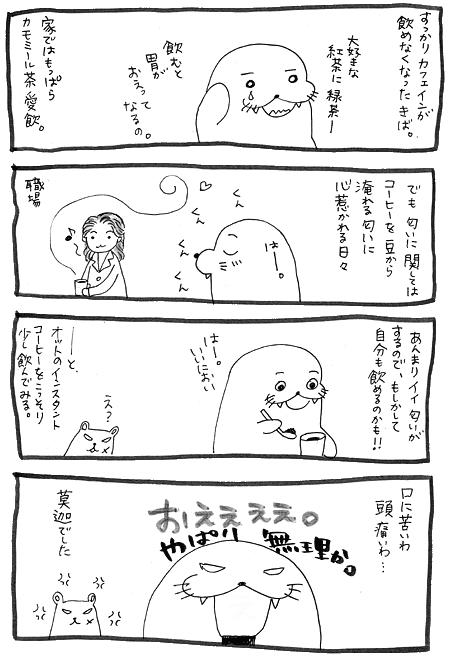 すっかりカフェインが
飲めなくなったきば。
大好きな
紅茶に緑茶ー
飲むと
胃が
おえって
なるの。
家ではもっぱら
カモミール茶愛飲。
でも匂いに関しては
コーヒーを豆から
淹れる匂いに
心惹かれる日々
はー。
くん
くん
くん
くん
職場
あんまりイイ匂いが
するので、もしかして
自分も飲めるのかも!!
はー。
いいにおい
え?
ーと、
オットのインスタント
コーヒーをこっそり
少し飲んでみる。
口に苦いわ
頭痛いわ…
おええええ。
やぱり無理か。
莫迦でした